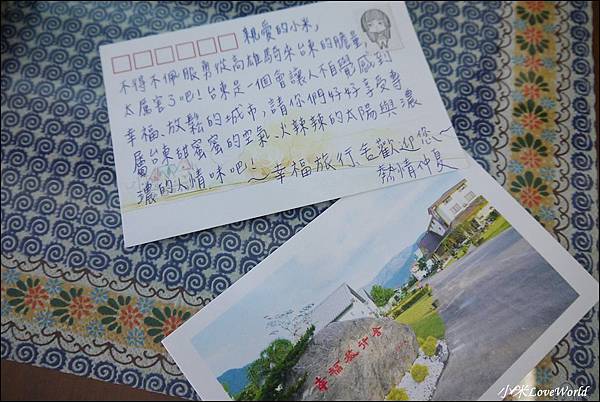 親愛的小米,
不得不佩服勇從高雄騎來台東的膽量,
太厲害了吧!台東是一個會讓人不自覺感到
幸福、放鬆的城市,請你們好好享受專
屬台東甜蜜蜜的空氣、火辣辣的太陽與濃
濃的人情味吧!
~幸福旅行舍歡迎您~
熱情仲夏
幸福旅行舍
小米LoveWorld